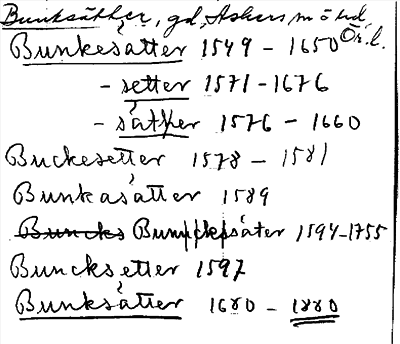 Bunksätter, gd, Askers sn ö hd, Ör. l.
Bunkesätter 1549 - 1650
- setter 1571 - 1676
- sätter 1576 - 1660
Buckesetter 1578 - 1581
Bunkasätter 1589
Buncks Buncksäter 1594-1755
Buncksetter 1597
Bunksätter 1680 - 1880